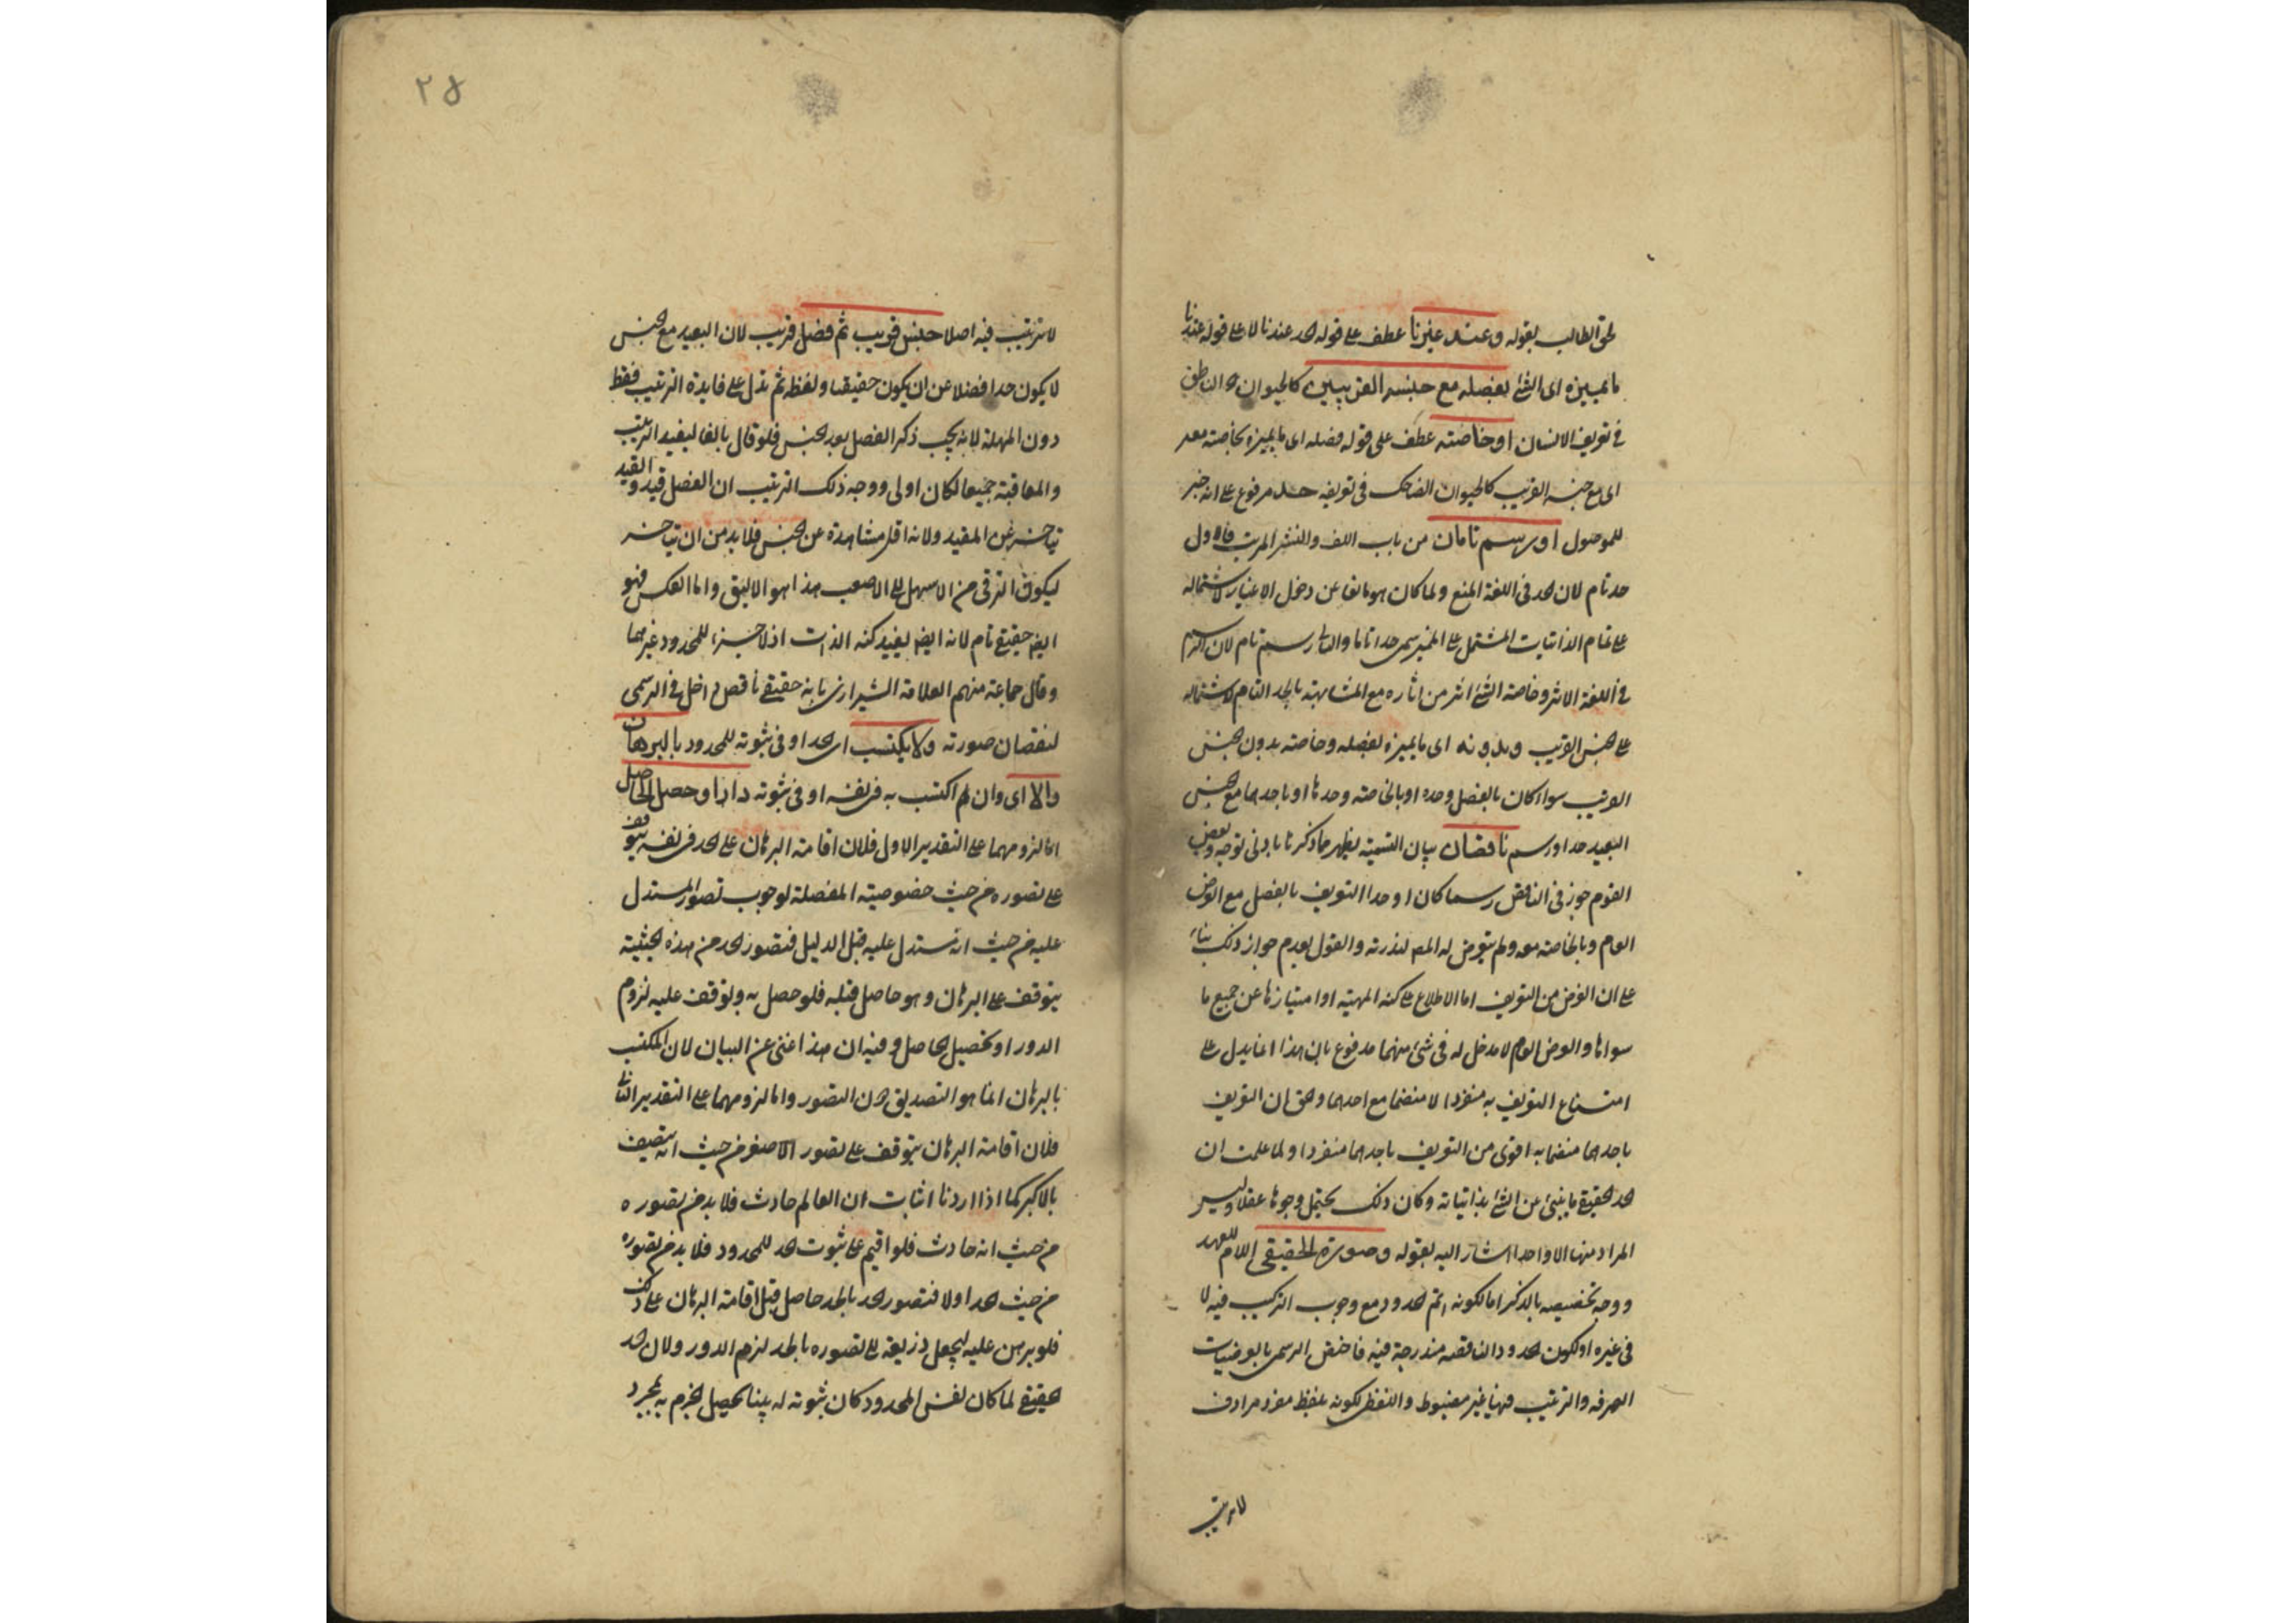 لحق الطالب بقوله وعند غيرنا عطف على قوله الحد عندنا لا على قوله عندنا
ما يميزه اى الشئ بفصله مع جنسه القريبين كالحيوان الناطق
فى تعريف الانسان او خاصته عطف على قوله فصله اى ما يميزه بخاصته معه
اى مع جنسه القريب كالحيوان الضاحك فى تعريفه حد مرفوع على انه خبر
للموصول او رسم تامان من باب اللف والنشر المرتب فالاول
حد تام لان الحد فى اللغة المنع ولما كان هو مانعا عن دخول الاغيار لاشتماله
على تمام الذاتيات المشتمل على المميز سمى حدا تاما والثانى رسم تام لان الرسم
فى اللغة الاثر وخاصة الشئ اثر من اثاره مع المشابهة بالحد التام لاشتماله
على الجنس القريب وبدونه اى ما يميزه بفصله وخاصته بدون الجنس
القريب سوا كان بالفصل وحده او بالخاصة وحدها او باحدهما مع الجنس
البعيد حد او رسم ناقصان بيان التسمية يظهر مما ذكرنا بادنى توجه وبعض
القوم جوز فى الناقص رسما كان او حدا التعريف بالفصل مع العرض
العام وبالخاصة معه ولم يتعرض له المص لندرته والقول بعدم جواز ذلك بناء
على ان الغرض من التعريف اما الاطلاع على كنه المهية او امتيازها عن جميع ما
سواها والعرض العام لا مدخل له فى شئ منهما مدفوع بان هذا انما يدل على
امتناع التعريف به منفردا لا منضما مع احدهما والحق ان التعريف
باحدهما منضما به اقوى من التعريف باحدهما منفردا ولما علمت ان
الحد الحقيقى ما ينبئ عن الشئ بذاتياته وكان ذلك يحتمل وجوها عقلا وليس
المراد منها الا واحدا اشار اليه بقوله وصورة الحقيقى اللام للعهد
ووجه تخصيصه بالذكر اما لكونه اتم الحدود مع وجوب التركيب فيه لا
فى غيره او لكون الحدود الناقصة مندرجة فيه فاختص الرسمى بالعرضيات
الصرفة والترتيب فيها غير مضبوط واللفظى لكونه بلفظ مفرد مرادف
لا ترتيب
٢٥
لا ترتيب فيه اصلا جنس قريب ثم فصل قريب لان البعيد مع الجنس
لا يكون حدا فضلا عن ان يكون حقيقيا ولفظ ثم تدل على فايدة الترتيب فقط
دون المهلة لانه يجب ذكر الفصل بعد الجنس فلو قال بالفا ليفيد الترتيب
والمعاقبة جميعا لكان اولى ووجه ذلك الترتيب ان الفصل قيد والقيد
يتاخر عن المقيد ولانه اقل مشاهدة عن الجنس فلا بد من ان يتاخر
ليكون الترقى من الاسهل الى الاصعب هذا هو الاليق واما العكس فهو
ايض حقيقى تام لانه ايض يفيد كنه الذات اذ لا جزء للمحدود غيرهما
وقال جماعة منهم العلامة الشيرازى بانه حقيقى ناقص داخل فى الرسمى
لنقصان صورته ولا يكتسب اى الحد او فى ثبوته للمحدود بالبرهان
والا اى وان لم اكتسب به فى نفسه او فى ثبوته دار او حصل الحاصل
اما لزومهما على التقدير الاول فلان اقامة البرهان على الحد فى نفسه يتوقف
على تصوره من حيث خصوصيته المفصلة لوجوب تصور المستدل
عليه من حيث انه يستدل عليه قبل الدليل فتصور الحد من هذه الحيثية
يتوقف على البرهان وهو حاصل قبله فلو حصل به وتوقف عليه لزوم
الدور او تحصيل الحاصل وفيه ان هذا غنى عن البيان لان المكتسب
بالبرهان انما هو التصديق دون التصور واما لزومهما على التقدير الثانى
فلان اقامة البرهان يتوقف على تصور الاصغر من حيث انه يتصف
بالاكبر كما اذا اردنا اثبات ان العالم حادث فلا بد من تصوره
من حيث انه حادث فلو اقيم على ثبوت الحد للمحدود فلا بد من تصوره
من حيث الحد اولا فتصور الحد بالحد حاصل قبل اقامة البرهان على ذلك
فلو برهن عليه ليجعل ذريعة الى تصوره بالحد لزم الدور ولان الحد
الحقيقى لما كان نفس المحدود كان ثبوته له بينا يحصل الجزم به بمجرد